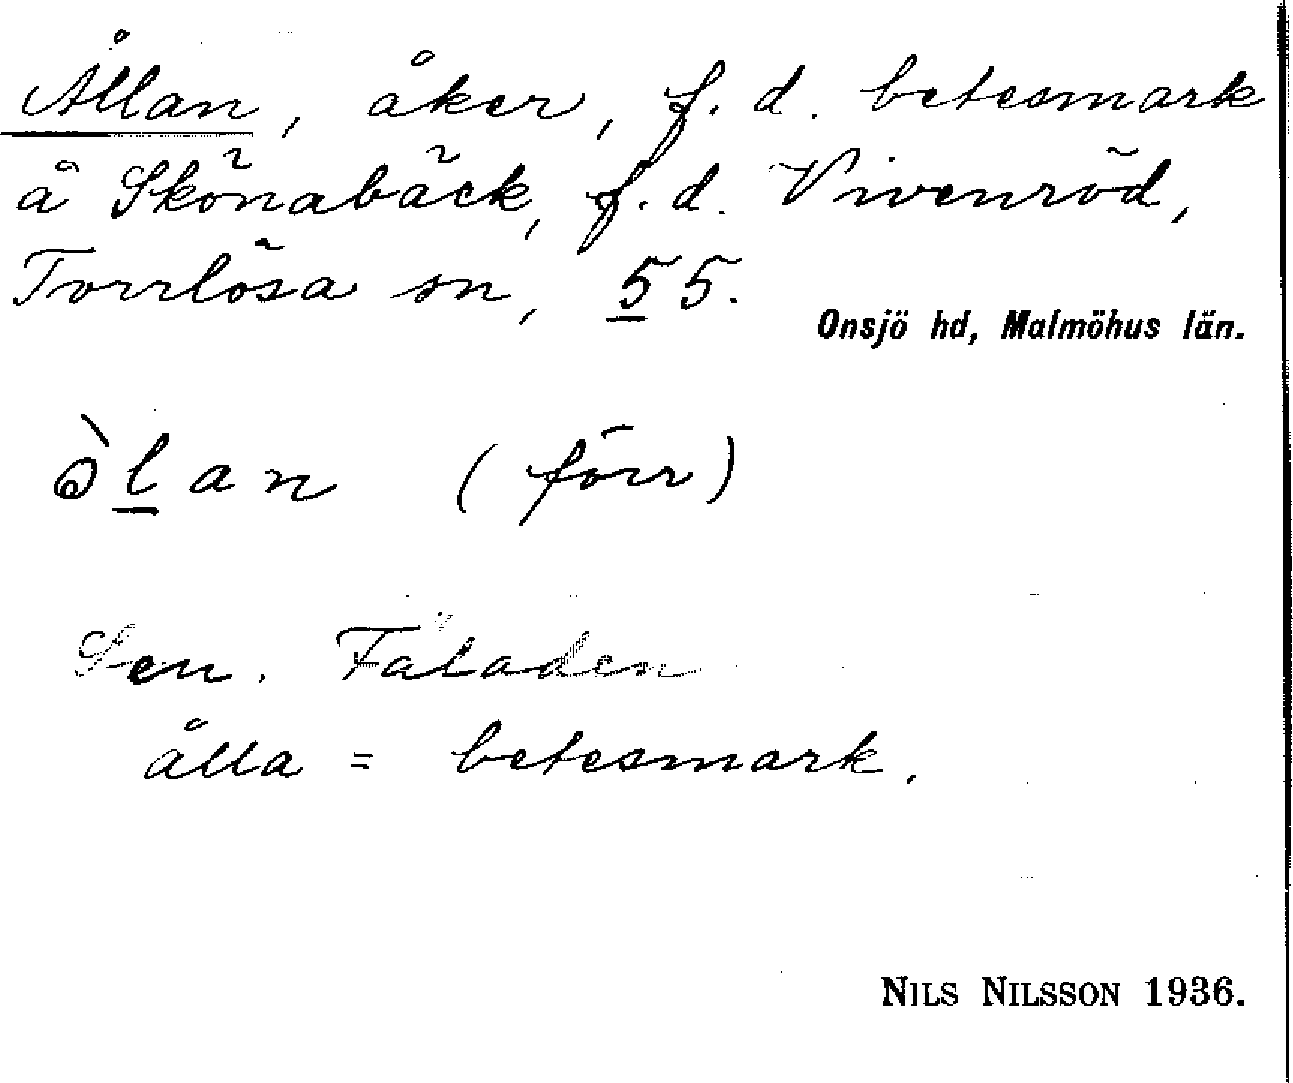 Ållan, åker, f. d. betesmark
å Skönabäck, f. d. Vivenröd,
Torrlösa sn, 55.
Onsjö hd, Malmöhus län.
òlan (förr)
Sen. Fäladen
ålla = betesmark.
NILS NILSSON 1936.